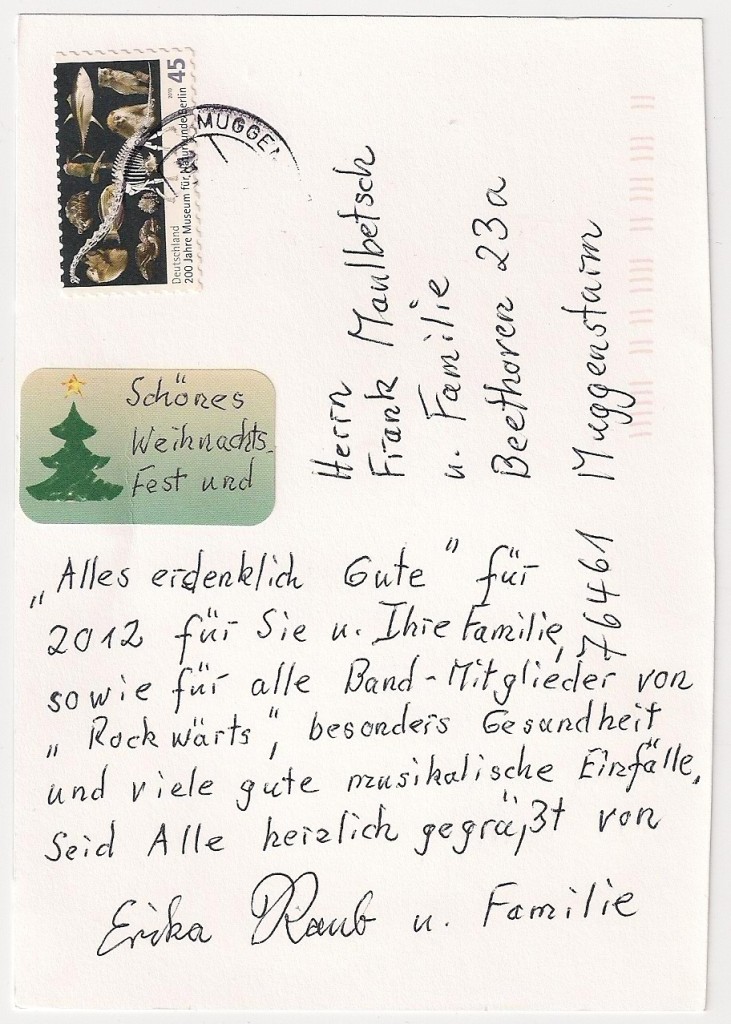 45
2010
Deutschland
200 Jahre Museum für Naturkunde Berlin
MUGGEN
Herrn
Frank Maulbetsch
u. Familie
Beethoven 23a
76461 Muggensturm
Schönes
Weihnachts-
Fest und
„Alles erdenklich Gute" für
2012 für Sie u. Ihre Familie,
sowie für alle Band-Mitglieder von
„Rockwärts", besonders Gesundheit
und viele gute musikalische Einfälle.
Seid Alle herzlich gegrüßt von
Erika Raub u. Familie